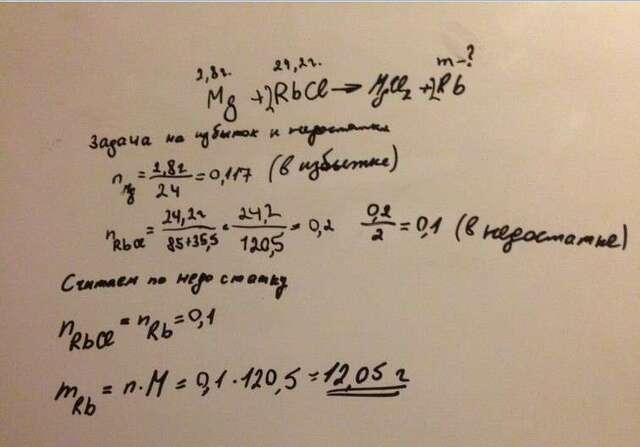 2,8г. 24,2г. m-?
Mg + 2RbCl → MgCl₂ + 2Rb
Задача на избыток и недостаток
n Mg = 2,8г / 24 = 0,117 (в избытке)
n RbCl = 24,2г / 85+35,5 = 24,2 / 120,5 = 0,2 0,2 / 2 = 0,1 (в недостатке)
Считаем по недостатку
n RbCl = n Rb = 0,1
m Rb = n·M = 0,1·120,5 = 12,05 г